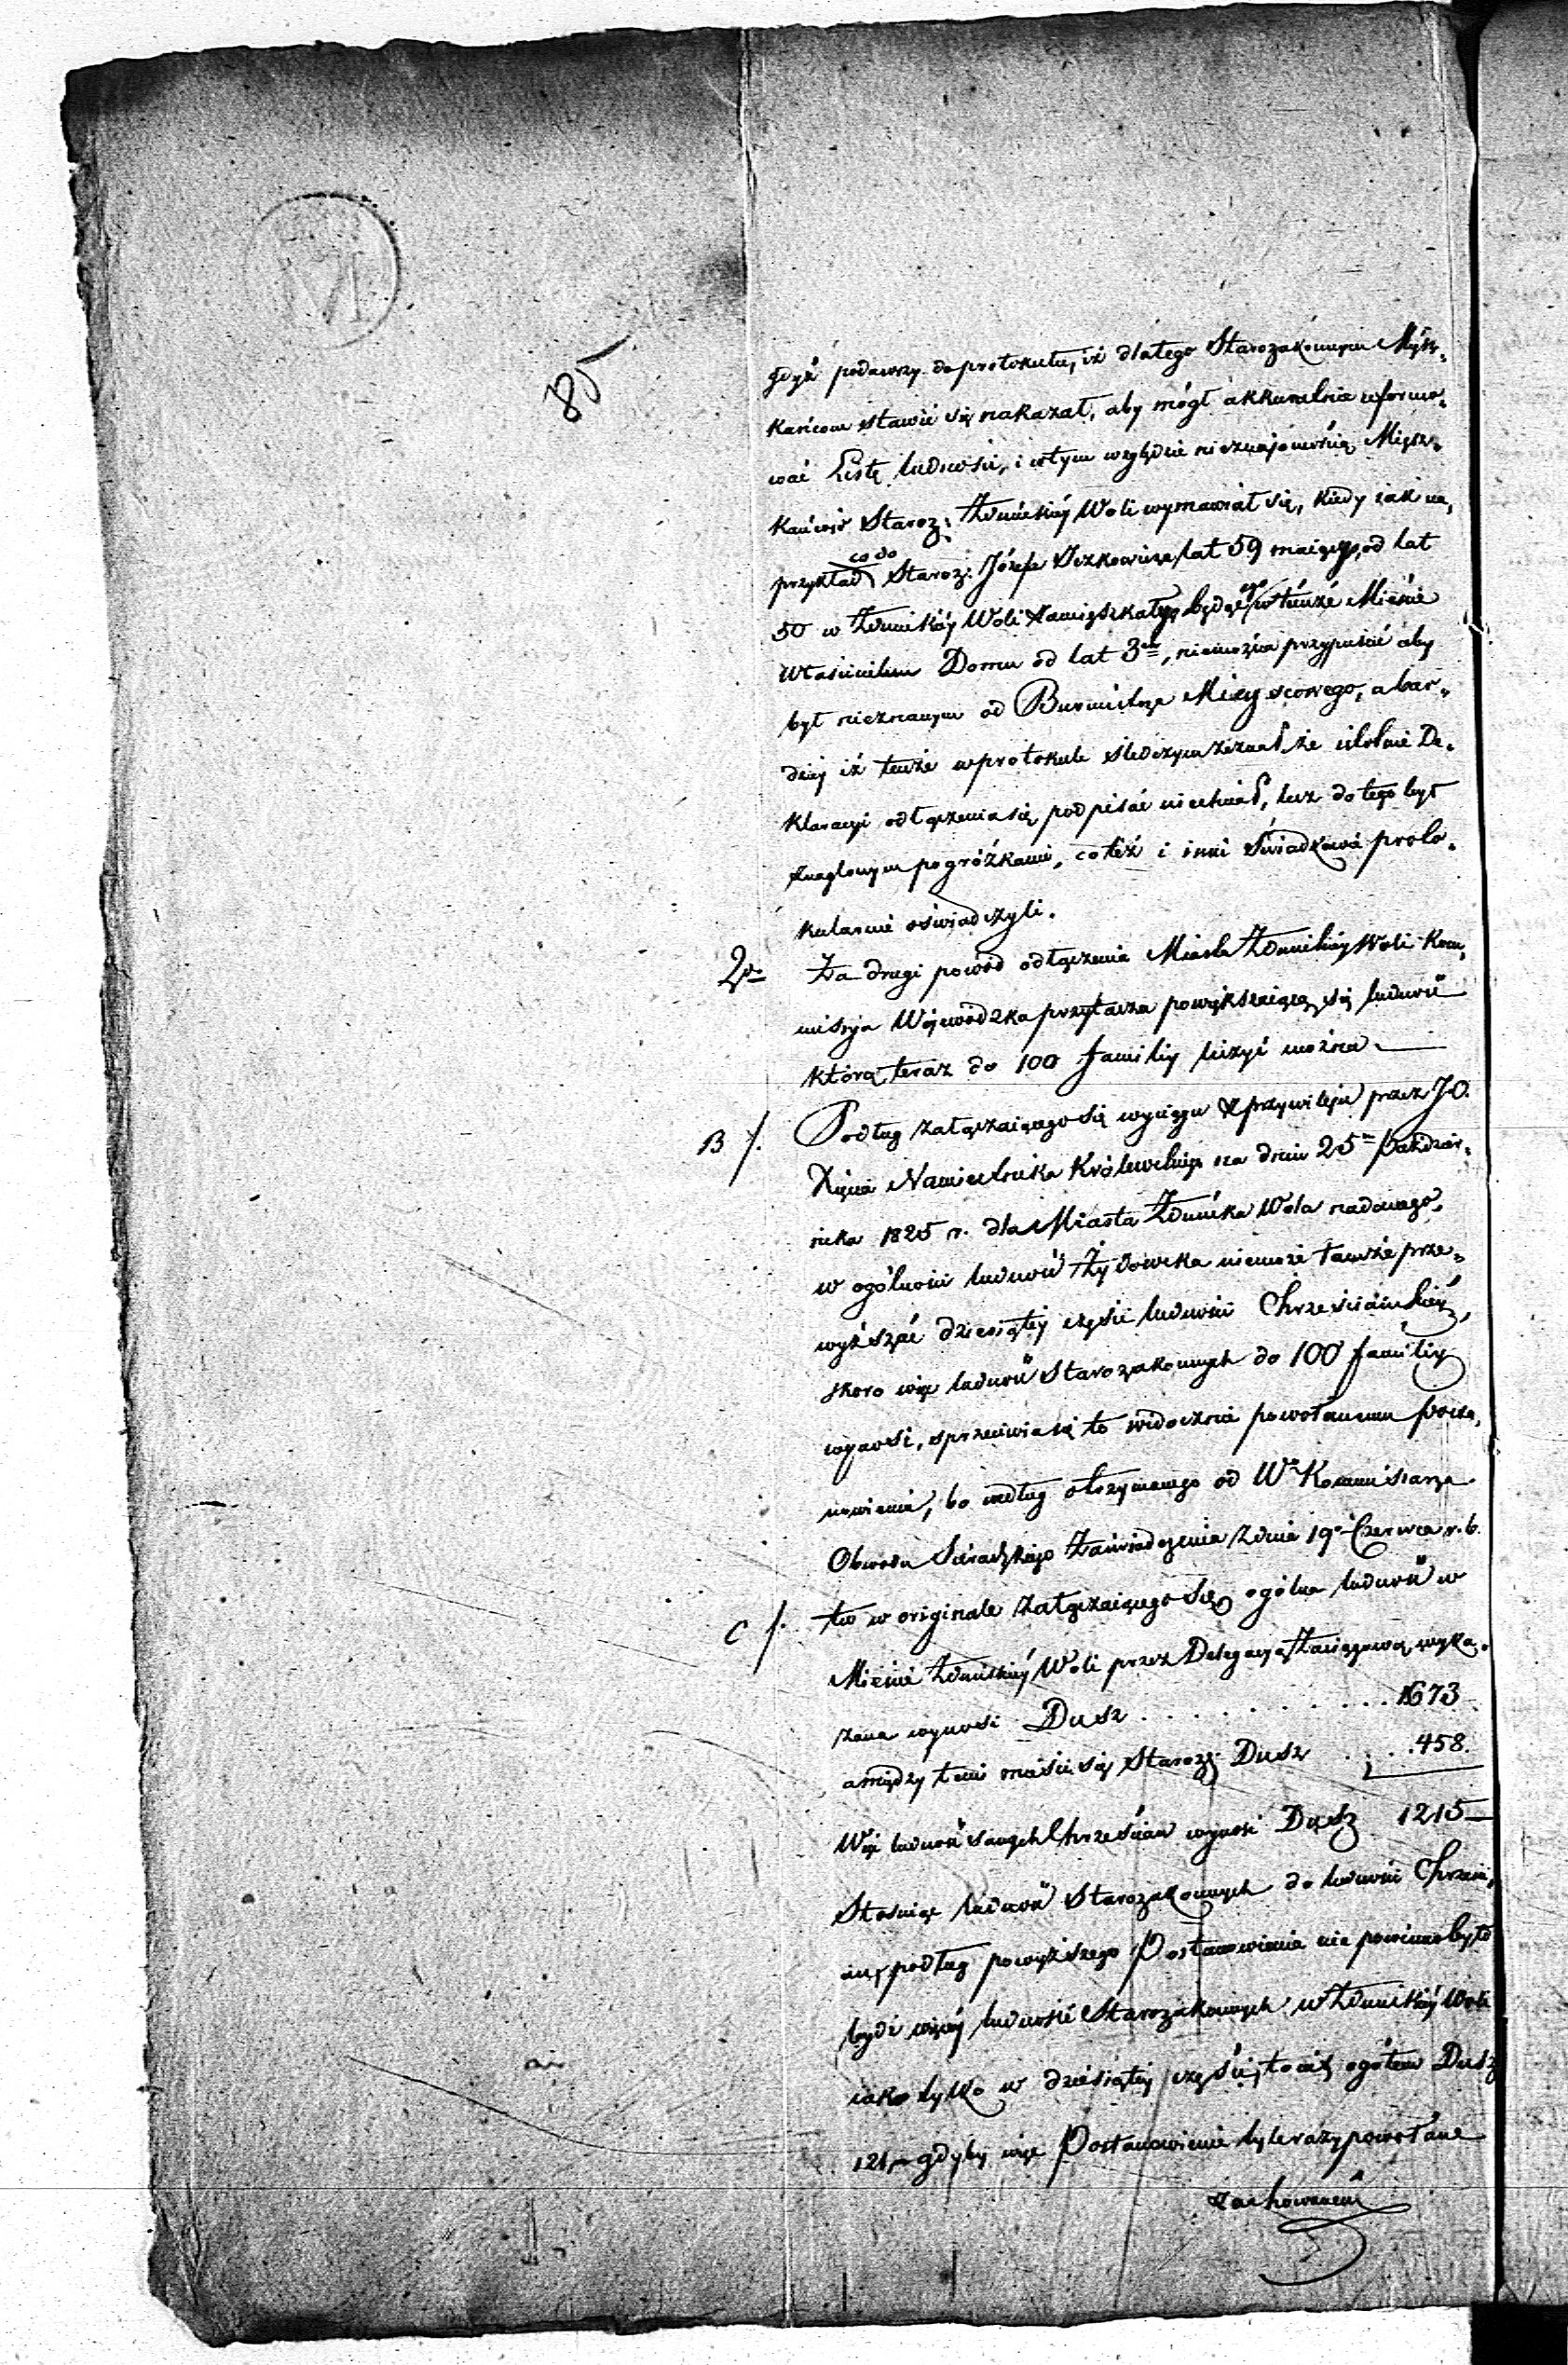 85
gdyż podawszy do protokułu, iż dlatego Starozakonnym Miesz„
kańcom stawić się nakazał, aby mógł akkuratnie uformo„
wać Listę ludności, i w tym względzie nieznajomością Miesz„
kańców Staroz: Zduńskiéy Woli wymawiał się, kiedy iak na„
przykład co do Staroz: Józefa Iczkowicza lat 59 maiącego, od lat
50 w Zduńskiéy Woli zamieszkałego będącego w temże Mieście
Właścicielem Domu od lat 3ch, niemożna przypuścić aby
był nieznanym od Burmistrza Mieyscowego, a bar„
dziéy iż tenże w protokule śledczym zeznał że istotnie De„
klaracyi odłączenia się podpisać niechciał, lecz do tego był
znaglonym pogróżkami, co też i inni Świadkowie proto„
kularnie oświadczyli.
2do Za drugi powód odłączenia Miasta Zduńskiéy Woli Kom„
missya Wojewódzka przytacza powiększaiącą się ludność
którą teraz do 100 familiy liczyć można.
B /. Podług załączaiącego się wyciągu z przywileju przez JO.
Xięcia Namiestnika Królewskiego na dniu 25m Paździer„
nika 1825 r. dla Miasta Zduńska Wola nadanego,
w ogólności ludność Żydowska niemoże tamże prze„
wyższać dziesiątéy części ludności Chrześciańskiéy,
skoro więc ludność Starozakonnych do 100 familiy
wynosi, sprzeciwia się to widocznie powołanemu Posta„
nowieniu, bo według otrzymanego od Wo Kommissarza
Obwodu Sieradzkiego Zaświadczenia z dnia 19o Czerwca r. b.
C /. tu w originale załączaiącego się ogólna ludność w
Mieście Zduńskiéy Woli przez Delegacyą Zaciągową wyka„
zana wynosi Dusz . . . . . . . . . . 1673
a między temi mieści się Staroz: Dusz . . . . 458.
Więc ludność samych Chrześcian wynosi Dusz 1215
Stosuiąc ludność Starozakonnych do ludności Chrześci„
an, podług powyższego Postanowienia nie powinnoby to
bydź więcéy ludności Starozakonnych w Zduńskiéy Woli
iak tylko w dziesiątéy części, to iest ogółem Dusz
121, gdyby więc Postanowienie tyle razy powołane
zachowanem